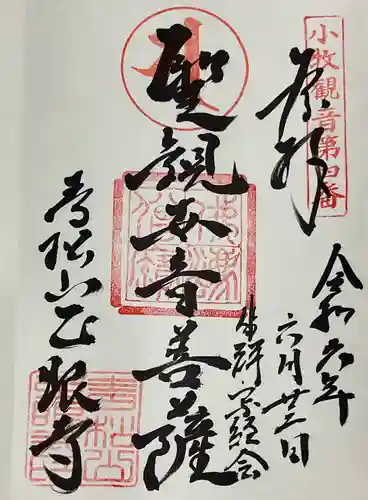 小牧観音第四番
奉拝
令和六年
六月廿二日
坐禅・写経会
聖観世音菩薩
青松山正眼寺